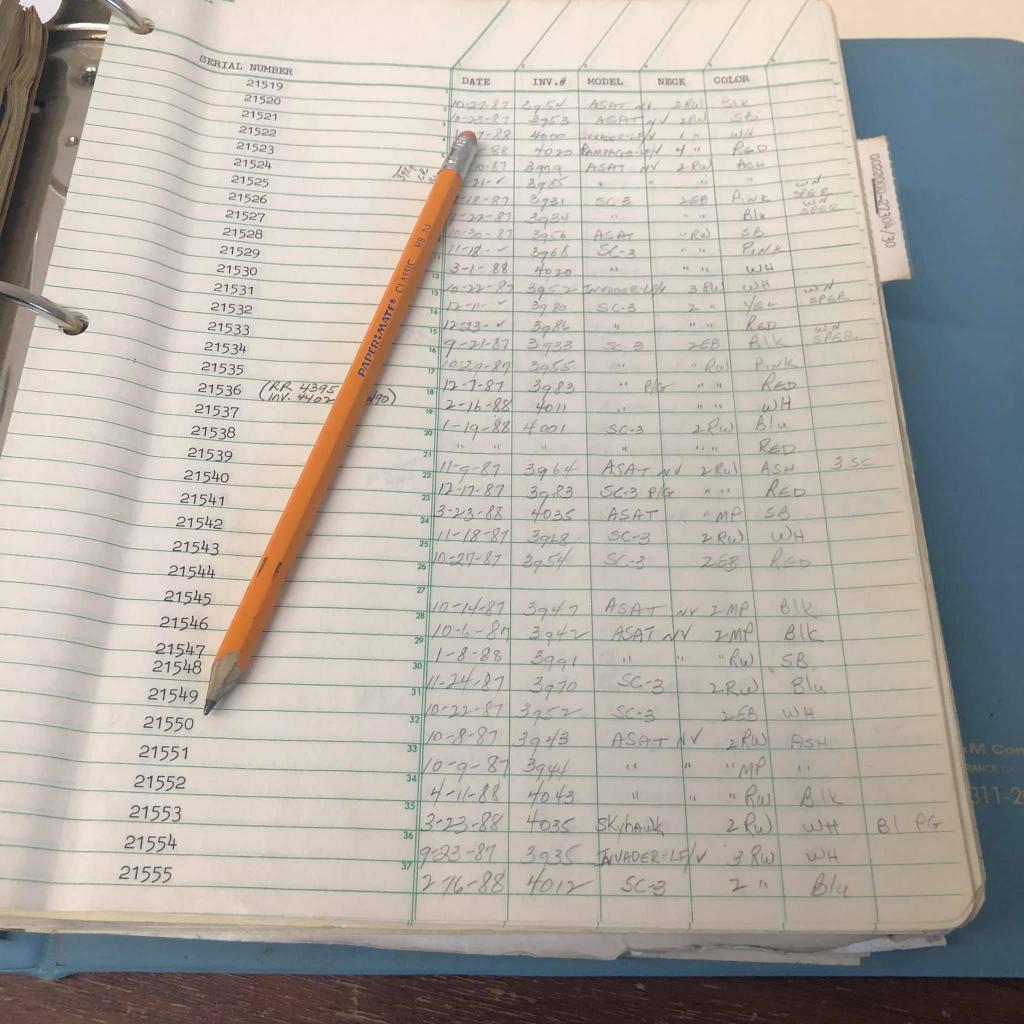 SERIAL NUMBER DATE INV.# MODEL NECK COLOR
21519 10-27-87 3954 ASAT NV 2RW Blk
21520 10-23-87 3953 ASAT NV 2RW SB
21521 4000 INVADER-LF/V 1 " WH
21522 88 4020 RAMPAGE-LF/V 4 " RED
21523 ASAT NV 2RW ASH
21524 3985 " " " "
21525 3931 SC-3 2EB PINK WN SPER
21526 22-87 3934 " " " Blu WN SPER
21527 10-30-87 3956 ASAT " RW SB
21528 11-18- ✓ 3968 SC-3 " " PINK
21529 3-1-88 4020 " " " WH
21530 10-22-87 3952 INVADER-LF/V 3 RW WH
21531 12-11- ✓ 3980 SC-3 2 " YEL WN SPER
21532 12-23- ✓ 3986 " " " RED
21533 9-21-87 3933 SC 3 2EB Blk WN SPER
21534 10-29-87 3955 " " RW PINK
21535 12-7-87 3983 " P/G " " RED
21536 (RR 4395 INV. 4402 /90) 2-16-88 4011 " " " WH
21537 1-19-88 4001 SC-3 2RW Blu
21538 " " " " " " RED
21539 11-9-87 3964 ASAT NV 2RW ASH 3 SC
21540 12-17-87 3983 SC-3 P/G " " RED
21541 3-23-88 4035 ASAT " MP SB
21542 11-18-87 3968 SC-3 2RW WH
21543 10-27-87 3954 SC-3 2EB RED
21544
21545 10-14-87 3947 ASAT NV 2MP Blk
21546 10-6-87 3942 ASAT NV 2MP Blk
21547 1-8-88 3991 " " " RW SB
21548 11-24-87 3970 SC-3 2RW Blu
21549 10-22-87 3952 SC-3 2EB WH
21550 10-8-87 3943 ASAT NV 2RW ASH
21551 10-9-87 3944 " " " MP "
21552 4-11-88 4043 " " " RW Blk
21553 3-23-88 4035 SKYHAWK 2RW WH Bl PG
21554 9-23-87 3935 INVADER-LF/V 3 RW WH
21555 2-16-88 4012 SC-3 2 " Blu
PAPER:MATE® CLASSIC HB 2
M Com
RANCE CA
311-2